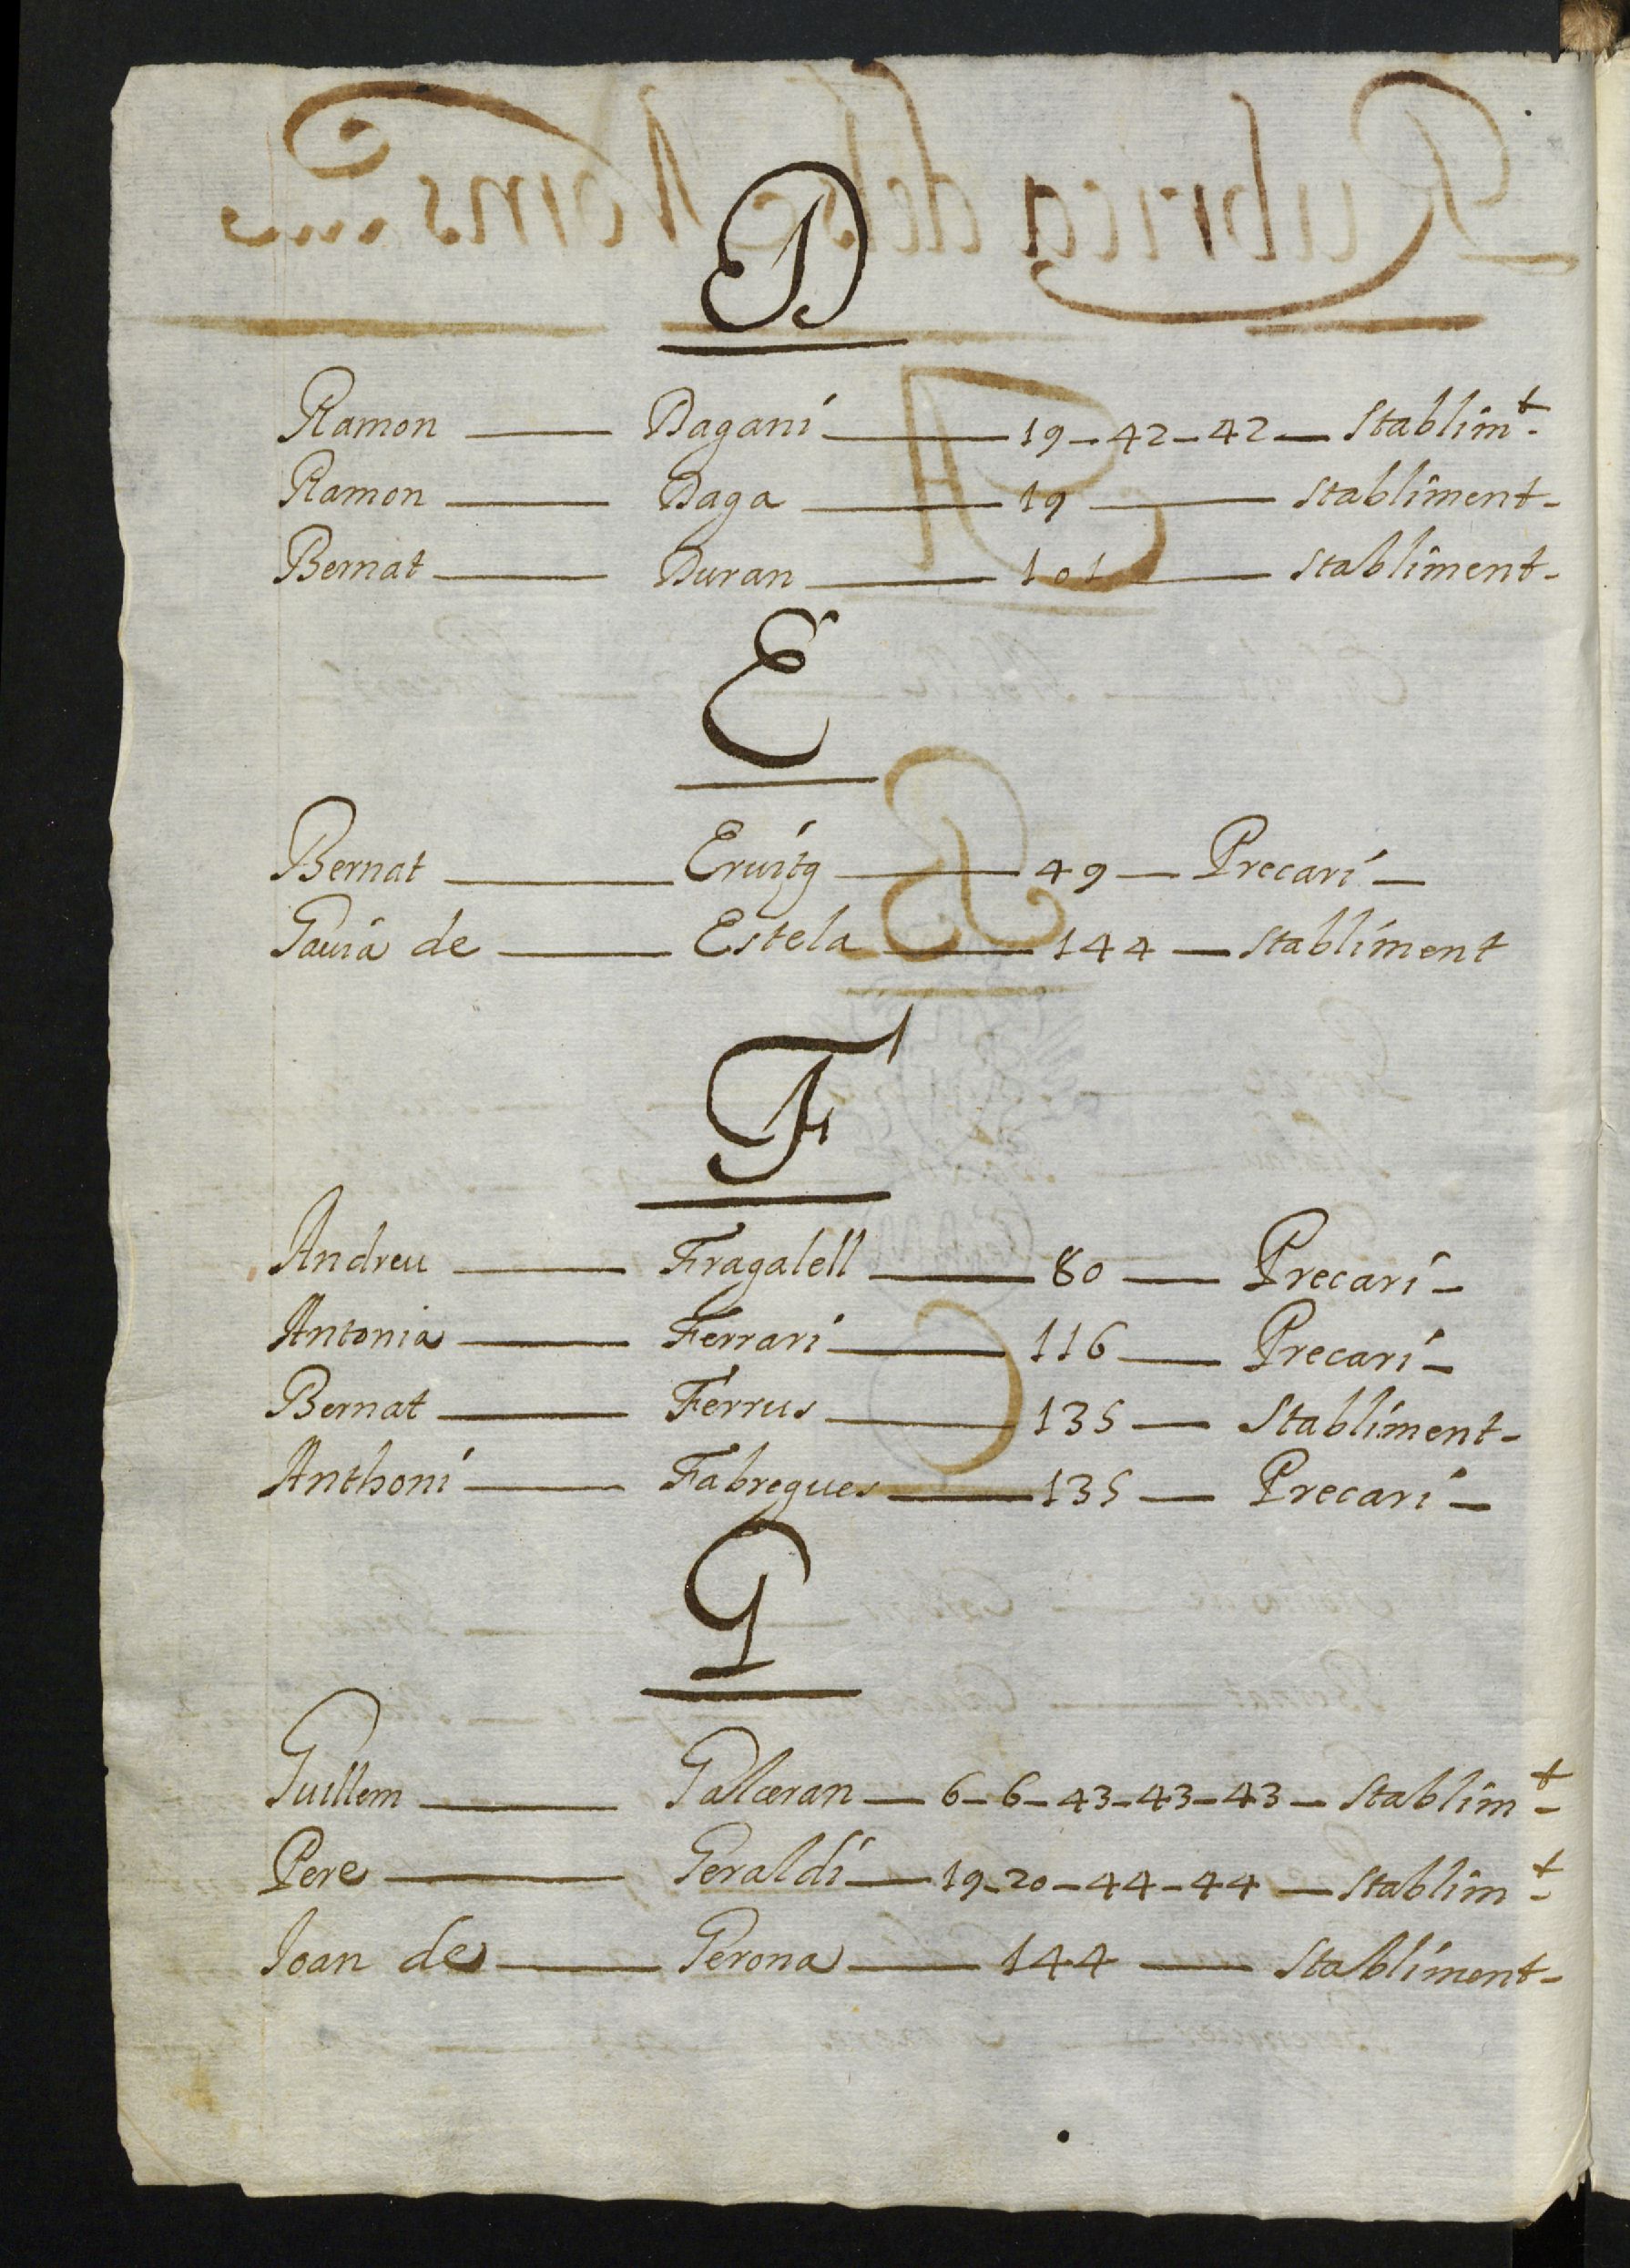 D
Ramon — Dagani — 19 - 42 - 42 — Stablimt.
Ramon — Daga — 19 — Stabliment -
Bernat — Duran — 101 — Stabliment -
E
Bernat — Eruitg — 49 — Precari —
Gauia de — Estela — 144 — Stabliment
F
Andreu — Fragalell — 80 — Precari -
Antonia — Ferrari — 116 — Precari -
Bernat — Ferrus — 135 — Stabliment -
Anthoni — Fabregues — 135 — Precari —
G
Guillem — Galceran — 6 - 6 - 43 - 43 - 43 — Stablimt
Pere — Geraldi — 19 - 20 - 44 - 44 — Stablimt
Joan de — Gerona — 144 — Stabliment -